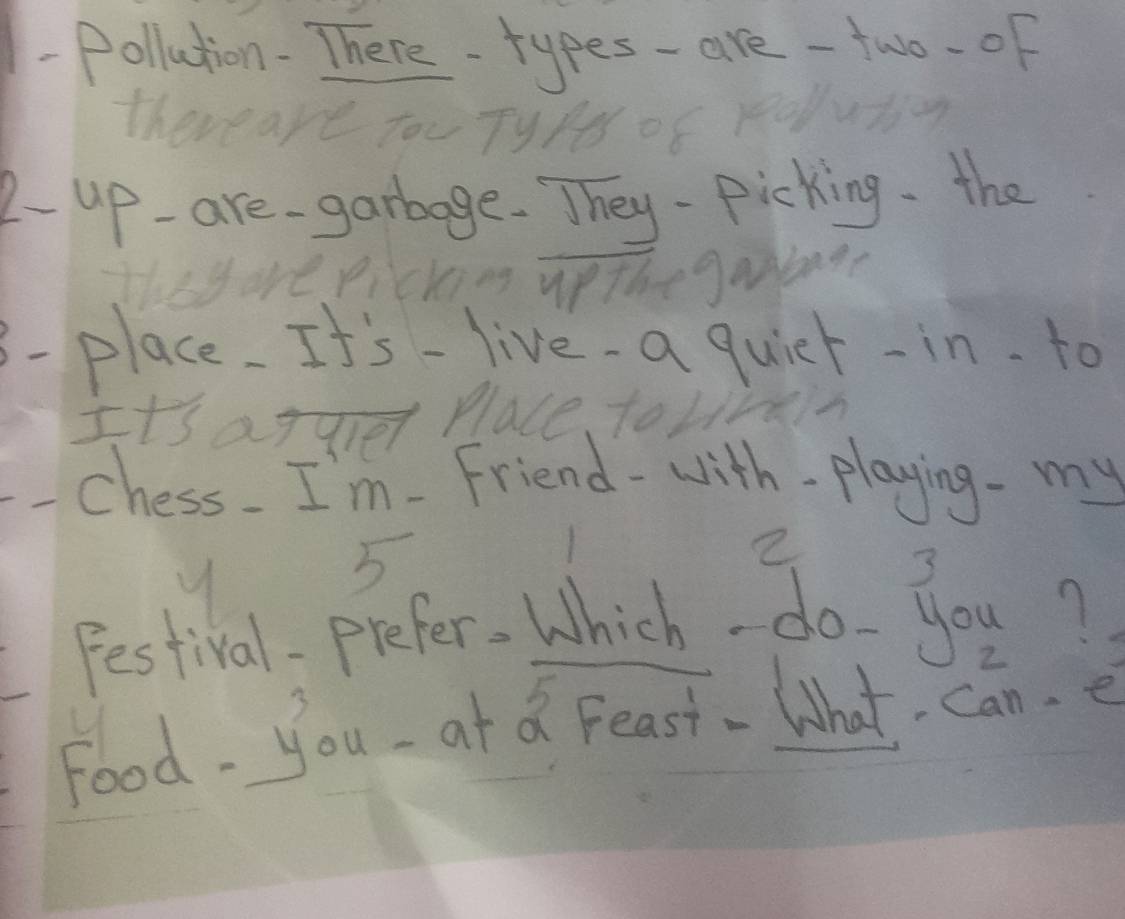 1 - Pollution - There - types - are - two - of
there are tou Types of pollution
2 - up - are - garbage - They - Picking - the
they are Picking up the
3 - place - It's - live - a quiet - in - to
It's a quiet Place to Live in
- Chess - I'm - Friend - with - playing - my
4 5 1 2 3
Festival - Prefer - Which - do - you ?
4 3 5 1 2
Food - you - at a Feast - What - Can - e